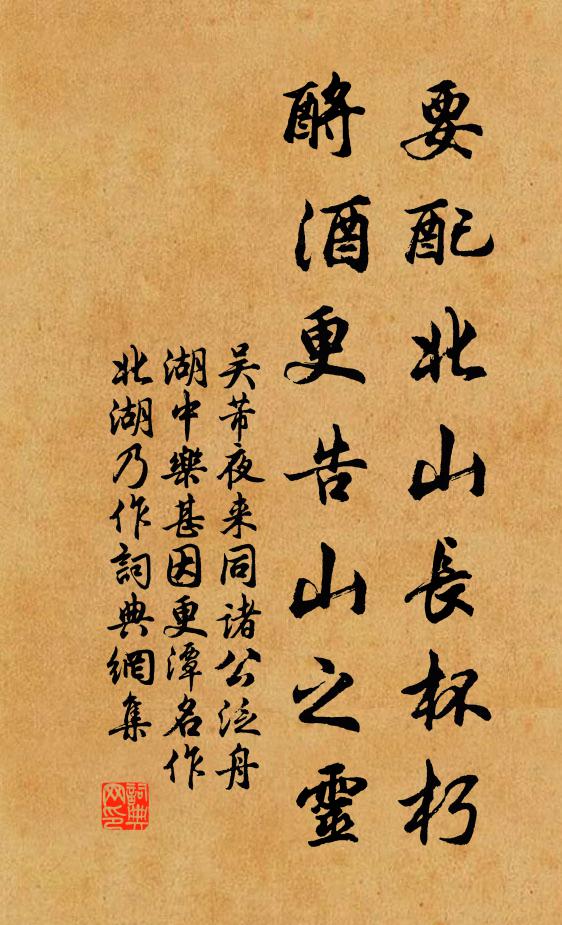 要配北山長杯朽
酹酒更告山之靈
吴芾夜来同諸公泛舟
湖中樂甚因更潭名作
北湖乃作詞典網集
詞典网印